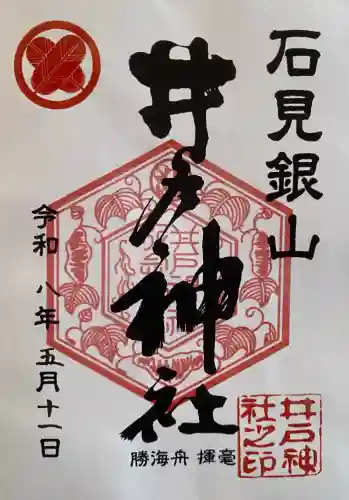 石見銀山
井戸神社
勝海舟 揮毫
令和八年五月十一日
井戸神
社之印